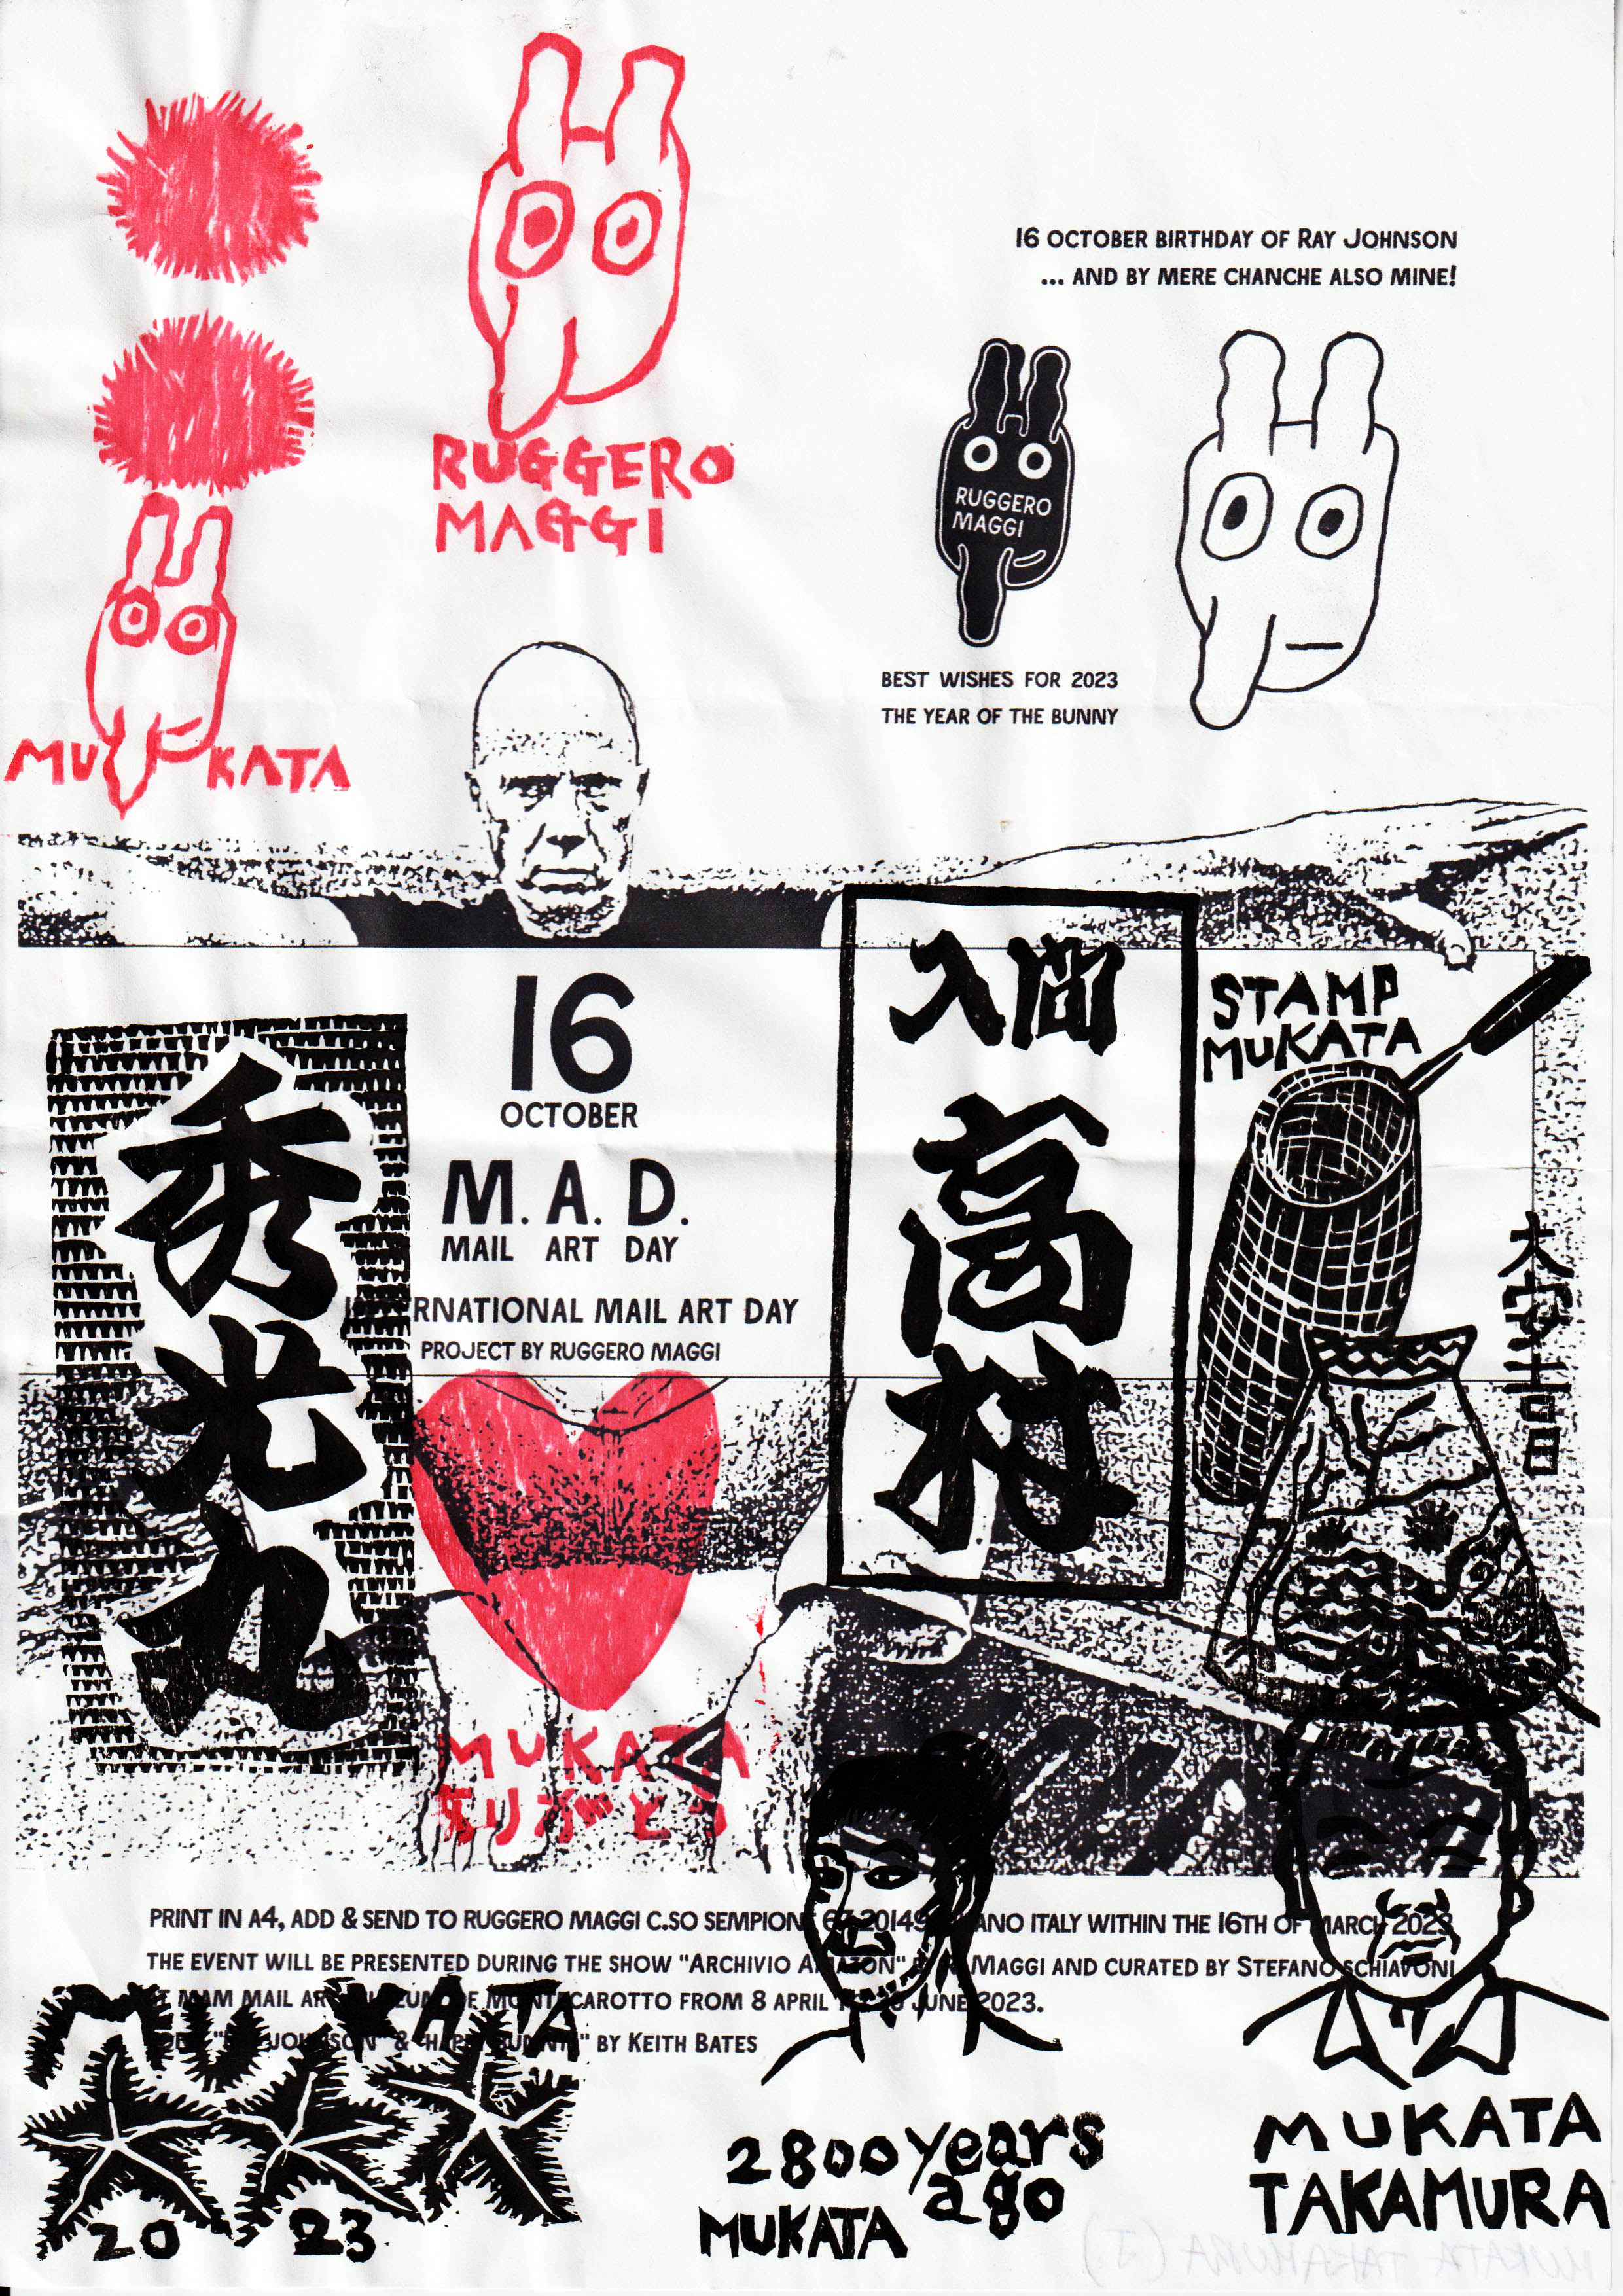 16 OCTOBER BIRTHDAY OF RAY JOHNSON
... AND BY MERE CHANCHE ALSO MINE!
RUGGERO
MAGGI
RUGGERO
MAGGI
BEST WISHES FOR 2023
THE YEAR OF THE BUNNY
MUKATA
16
OCTOBER
M. A. D.
MAIL ART DAY
RNATIONAL MAIL ART DAY
PROJECT BY RUGGERO MAGGI
秀光丸
入間
高村
STAMP
MUKATA
MUKATA
ありがとう
PRINT IN A4, ADD & SEND TO RUGGERO MAGGI C.SO SEMPION 67 20149 ANO ITALY WITHIN THE 16TH OF MARCH 2023
THE EVENT WILL BE PRESENTED DURING THE SHOW "ARCHIVIO AMAZON" MAGGI AND CURATED BY STEFANO SCHIAVONI
MAM MAIL ART MONTECAROTTO FROM 8 APRIL JUNE 2023.
BY KEITH BATES
MUKATA
2023
2800 years
ago
MUKATA
MUKATA
TAKAMURA